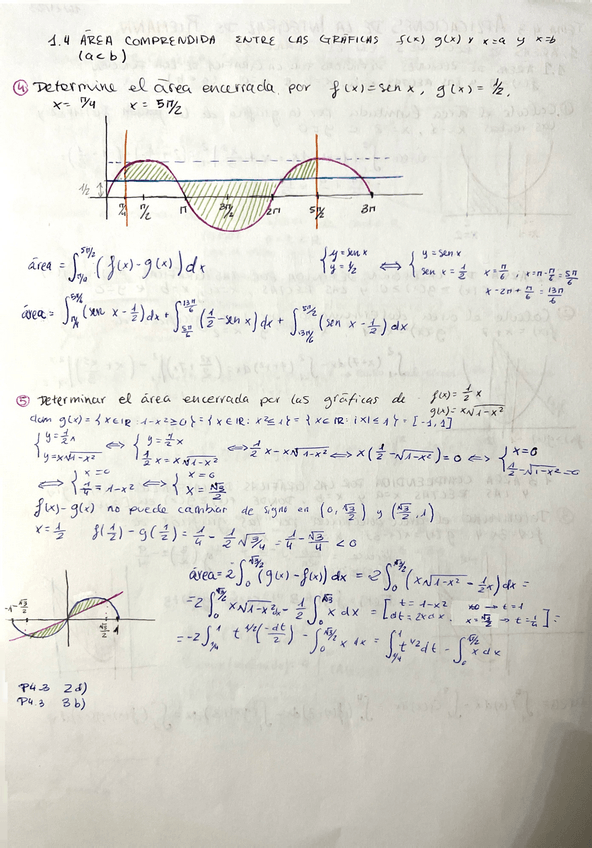 1.4 ÁREA COMPRENDIDA ENTRE LAS GRÁFICAS f(x) g(x) y x=a y x=b
(a<b)
④ Determine el área encerrada por f(x)=sen x, g(x)=½,
x = π/4 x = 5π/2
½
π/4 π/2 π 3π/2 2π 5π/2 3π
área = ∫_{π/4}^{5π/2} (f(x)-g(x)) dx
{y=sen x
y=½ ⇔ {y=sen x
sen x=½ x=π/6, x=π-π/6=5π/6
x=2π+π/6=13π/6
área = ∫_{π/4}^{5π/6} (sen x - ½) dx + ∫_{5π/6}^{13π/6} (½ - sen x) dx + ∫_{13π/6}^{5π/2} (sen x - ½) dx
⑤ Determinar el área encerrada por las gráficas de f(x)=½x
g(x)=x√1-x²
dom g(x) = {x∈ℝ: 1-x²≥0} = {x∈ℝ: x²≤1} = {x∈ℝ: |x|≤1} = [-1,1]
{y=½x
y=x√1-x² ⇔ {y=½x
½x=x√1-x² ⇔ ½x-x√1-x² ⇔ x(½-√1-x²)=0 ⇔ {x=0
½-√1-x²=0
⇔ {x=0
¼=1-x² ⇔ {x=0
x=√3/2
f(x)-g(x) no puede cambiar de signo en (0, √3/2) y (√3/2, 1)
x=½ f(½)-g(½) = ¼ - ½√3/4 = ¼ - √3/4 < 0
-1 -√3/2 √3/2 1
área = 2∫_0^{√3/2} (g(x)-f(x)) dx = 2∫_0^{√3/2} (x√1-x² - ½x) dx =
= 2∫_0^{√3/2} x√1-x² dx - ½∫_0^{√3} x dx = [t=1-x² x=0→t=1
dt=2xdx. x=√3/2→t=¼] =
= -2∫_{1/4}^1 t^{1/2}(-dt/2) - ∫_0^{√3/2} x dx = ∫_{1/4}^1 t^{1/2} dt - ∫_0^{√3/2} x dx
P4.3 2d)
P4.3 3b)